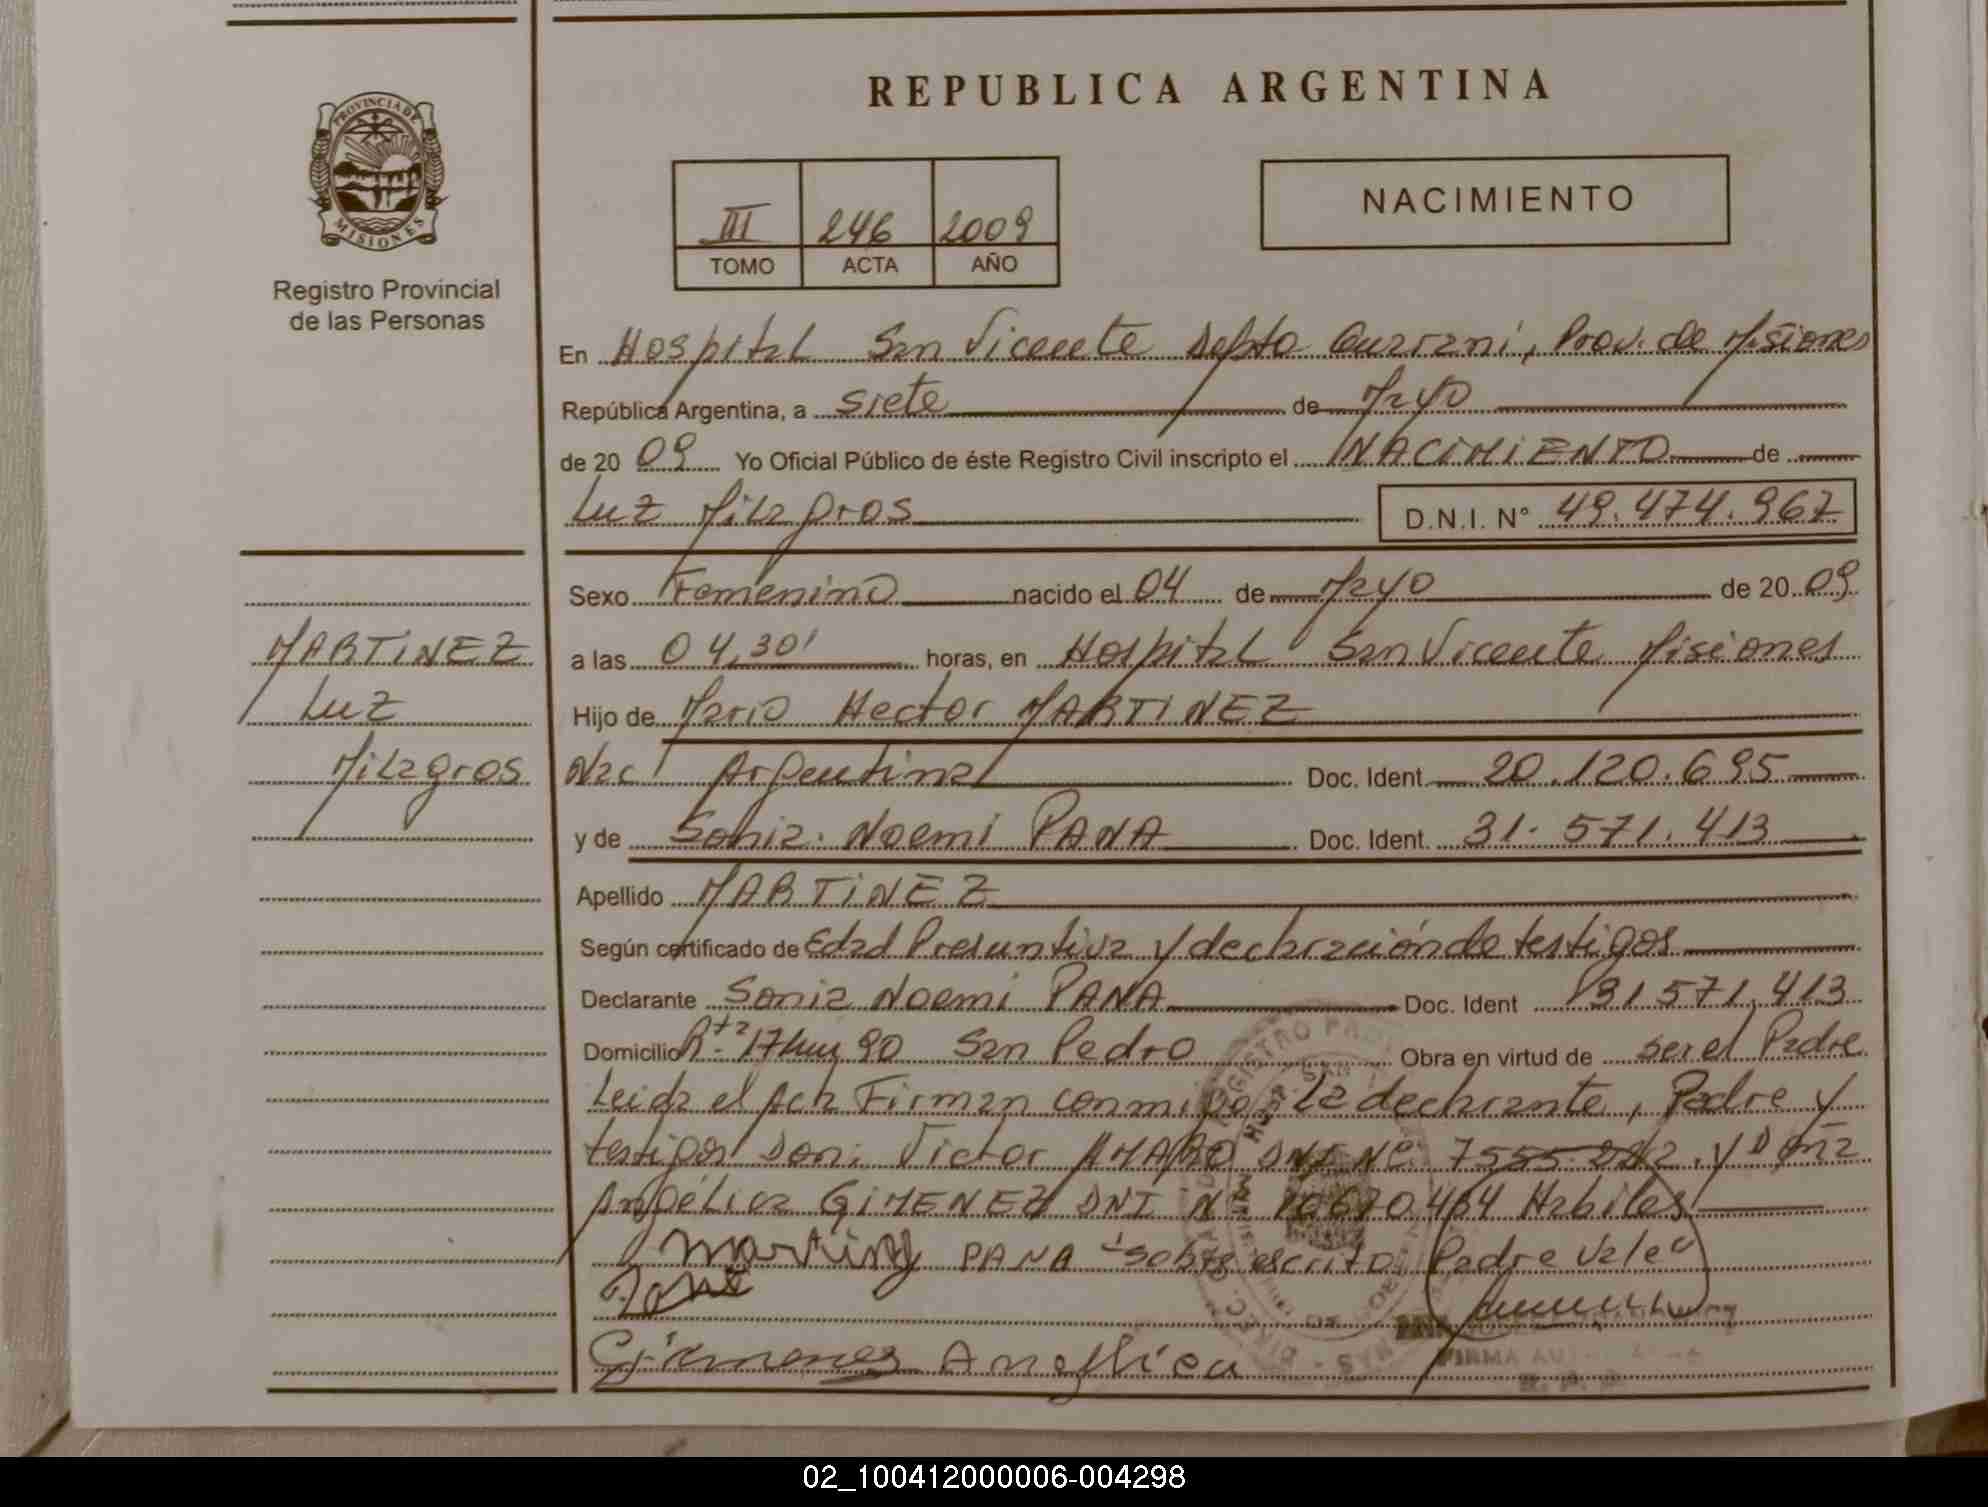 REPUBLICA ARGENTINA
PROVINCIA DE
MISIONES
Registro Provincial
de las Personas
III 246 2009
TOMO ACTA AÑO
NACIMIENTO
En Hospital San Vicente Depto Guarani, Prov. de Misiones
República Argentina, a siete de Mayo
de 2009 Yo Oficial Público de éste Registro Civil inscripto el NACIMIENTO de
Luz Milagros D.N.I. N° 49.474.967
Sexo Femenino nacido el 04 de Mayo de 2009
a las 04,30' horas, en Hospital San Vicente Misiones
Hijo de Mario Hector MARTINEZ
Nac Argentina Doc. Ident. 20.120.695
y de Sonia Noemi PANA Doc. Ident. 31.571.413
Apellido MARTINEZ
Según certificado de Edad Presuntiva y declaración de testigos
Declarante Sonia Noemi PANA Doc. Ident 31571.413
Domicilio Rta 17 km 90 San Pedro Obra en virtud de ser el Padre
Leida el Acta Firman conmigo La declarante, Padre y
testigos Don: Victor AMARO DNI Nº 7555 y Doña
Angélica GIMENEZ DNI Nº 464 Habiles
PANA sobre escrito Padre Vale
Gimenes Angelica
MARTINEZ
Luz
Milagros
02_100412000006-004298